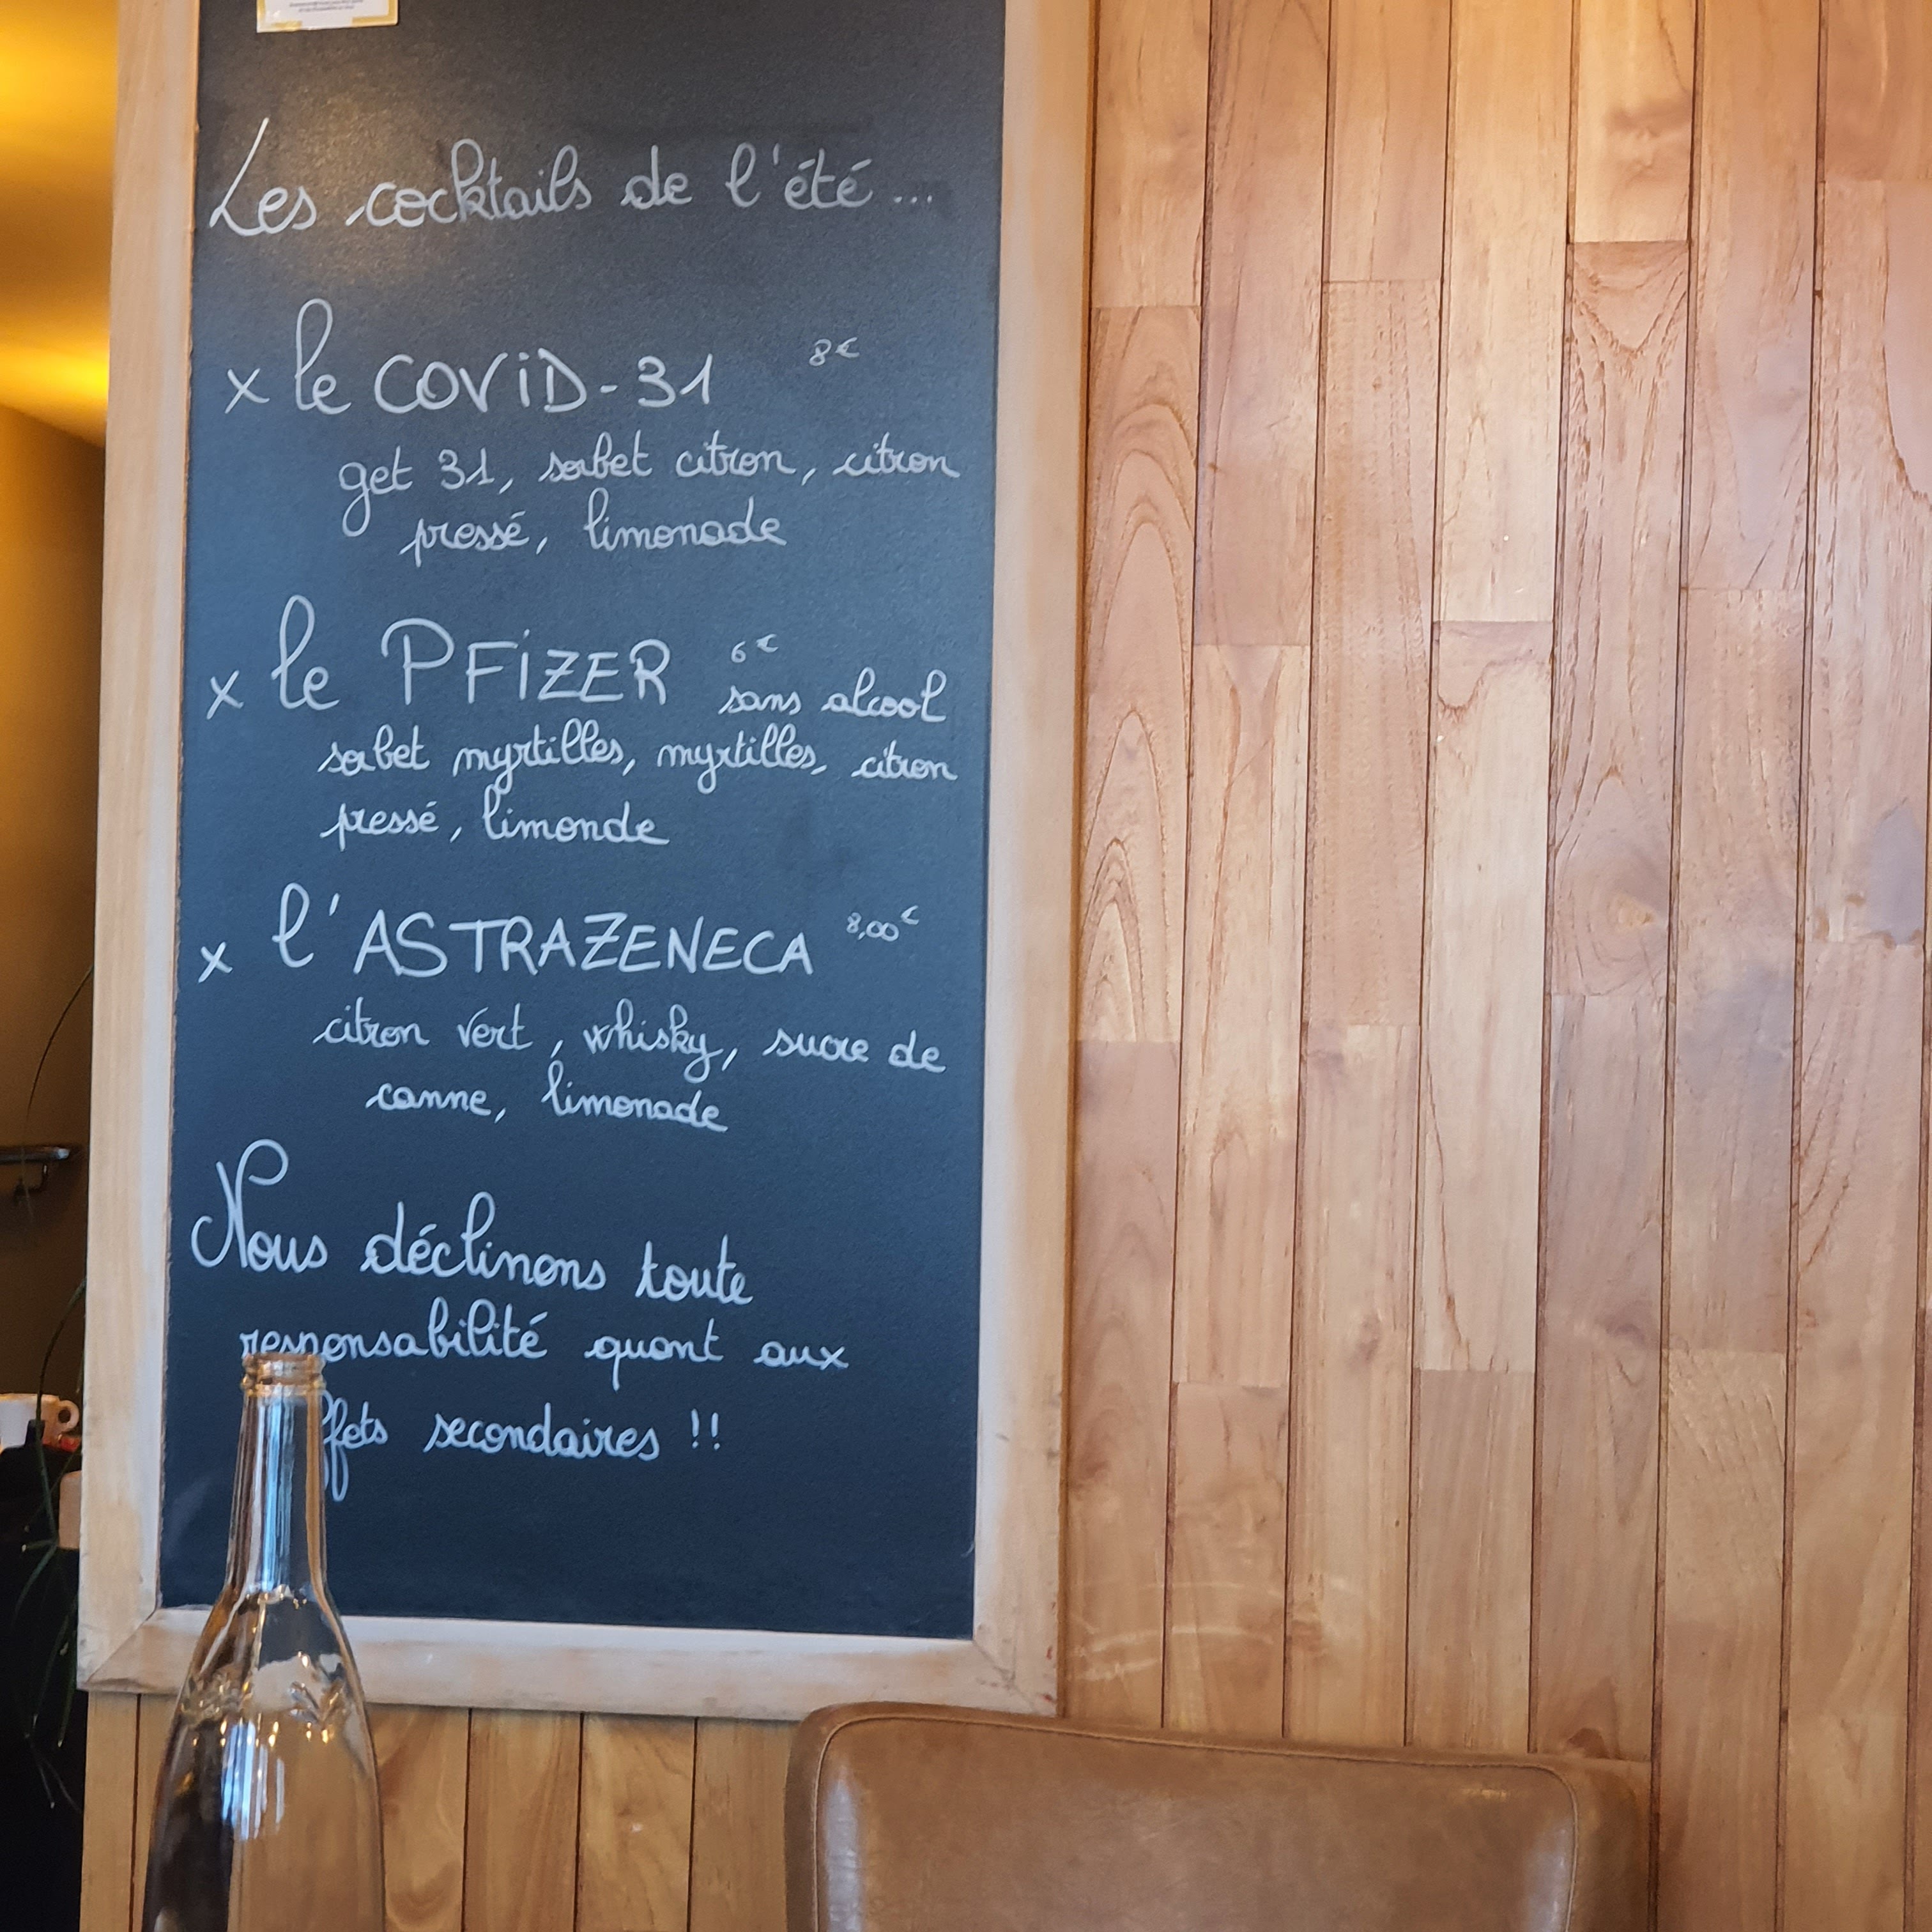 Les cocktails de l'été ...
x le COVID-31 8€
get 31, sorbet citron, citron
pressé, limonade
x le PFIZER 6€
sans alcool
sorbet myrtilles, myrtilles, citron
pressé, limonde
x l'ASTRAZENECA 8,00€
citron vert, whisky, sucre de
canne, limonade
Nous déclinons toute
responsabilité quant aux
ffets secondaires !!